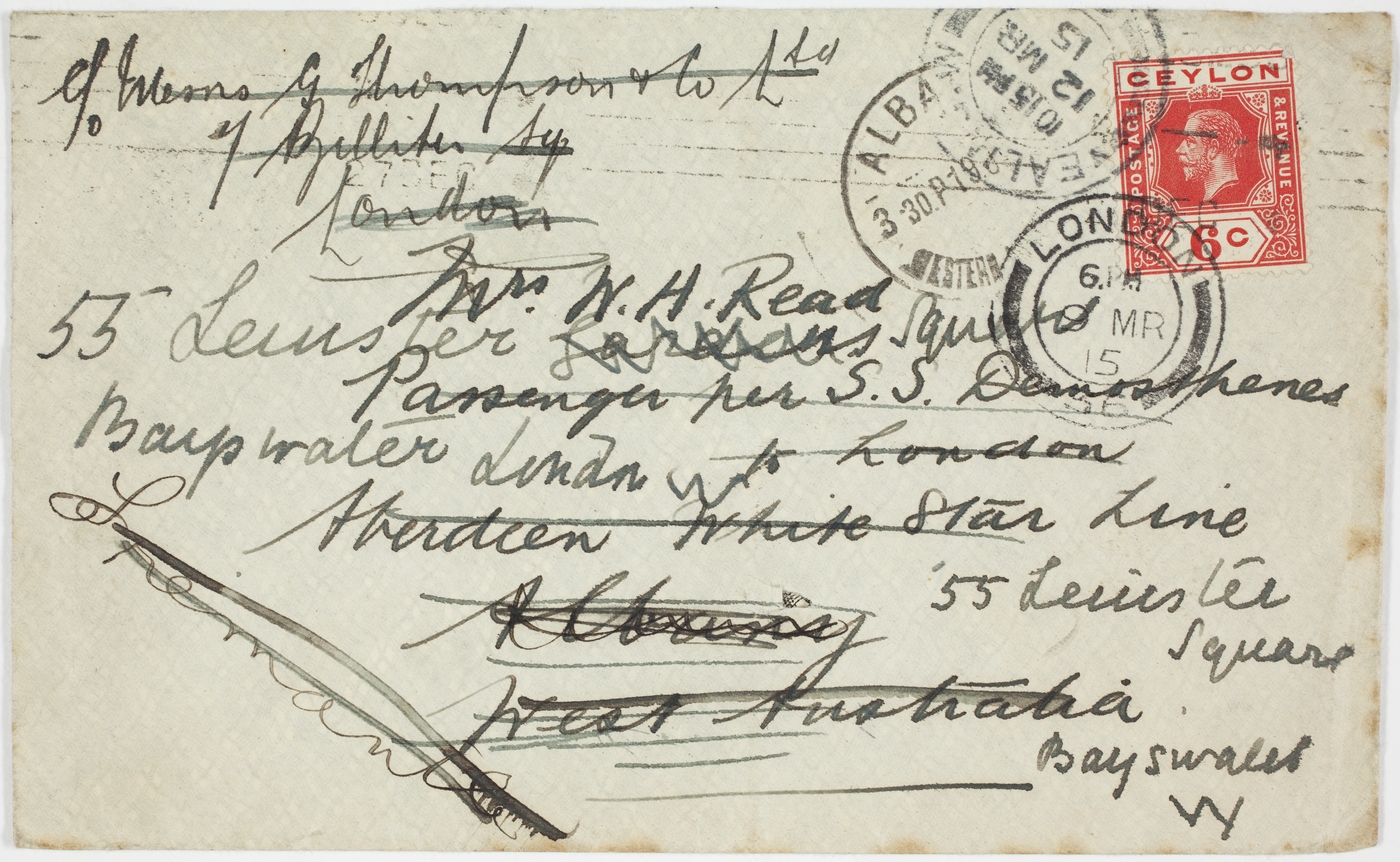 c/o Messrs G Thompson & Co Ltd
7 Billiter Sq
London
Mrs W. H. Read
55 Leinster Gardens Square
Passenger per S.S. Demosthenes
Bayswater London W to London
Aberdeen White Star Line
Albany
West Australia
55 Leinster
Square
Bayswater
W
Fremantle
CEYLON
POSTAGE
& REVENUE
6c
ALBANY
3 · 30 P
WESTERN
10.15 PM
12 MR
15
LONDON
6. PM
9 MR
15